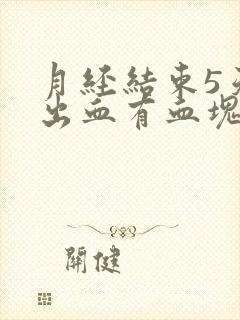 月经結束5天
出血有血塊
關健